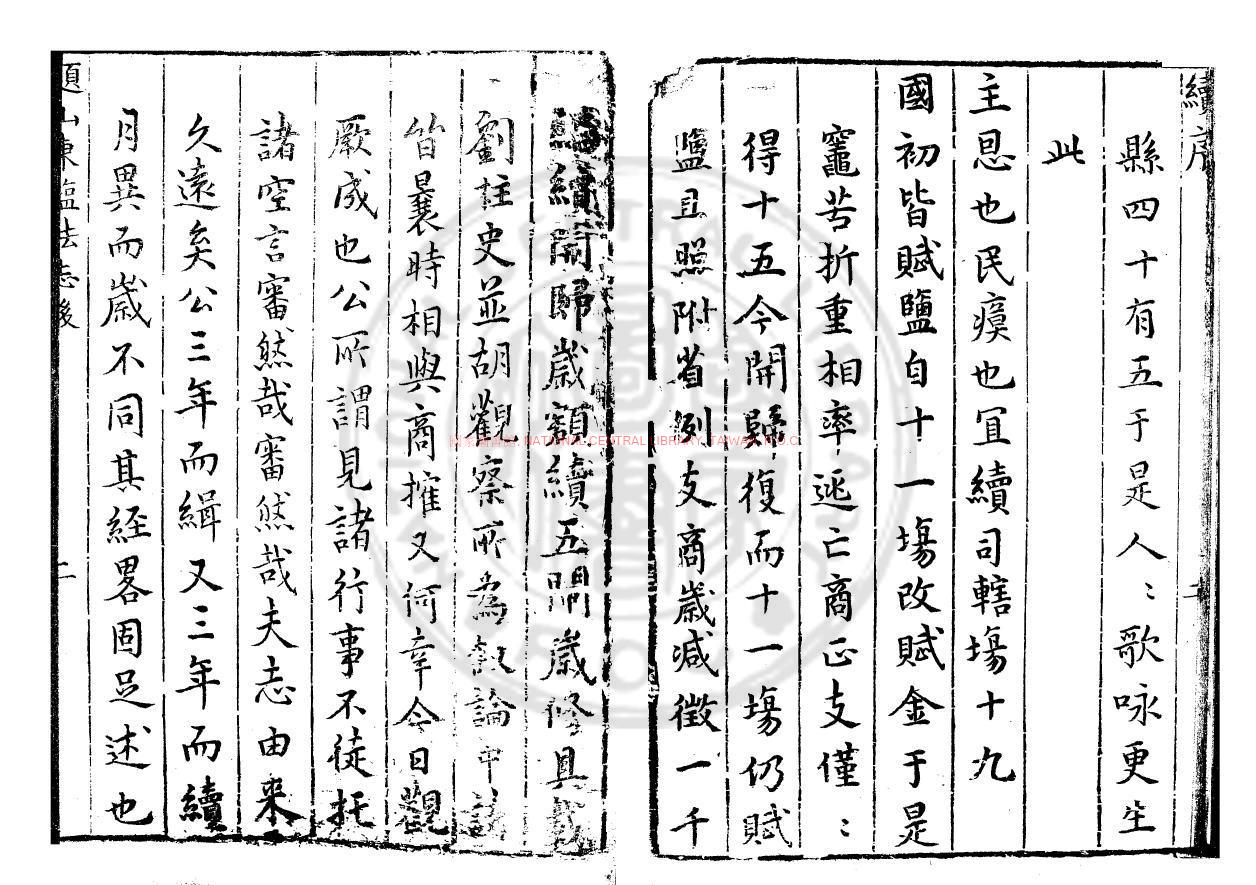 續序
縣四十有五于是人〻歌咏更生
此
主恩也民瘼也宜續司轄場十九
國初皆賦鹽自十一場改賦金于是
竈苦折重相率逃亡商正支僅〻
得十五今開歸復而十一場仍賦
鹽且照附省例支商歲减徵一千
續開歸歲額續五開歲修具載
劉柱史並胡觀察所爲叙論中
皆曩時相與商搉又何幸今日觀
厥成也公所謂見諸行事不徒托
諸空言審然哉審然哉夫志由來
久遠矣公三年而緝又三年而續
月異而歲不同其経畧固足述也
題山東鹽法志後
二
國家圖書館 NATIONAL CENTRAL LIBRARY, TAIWAN, R.O.C